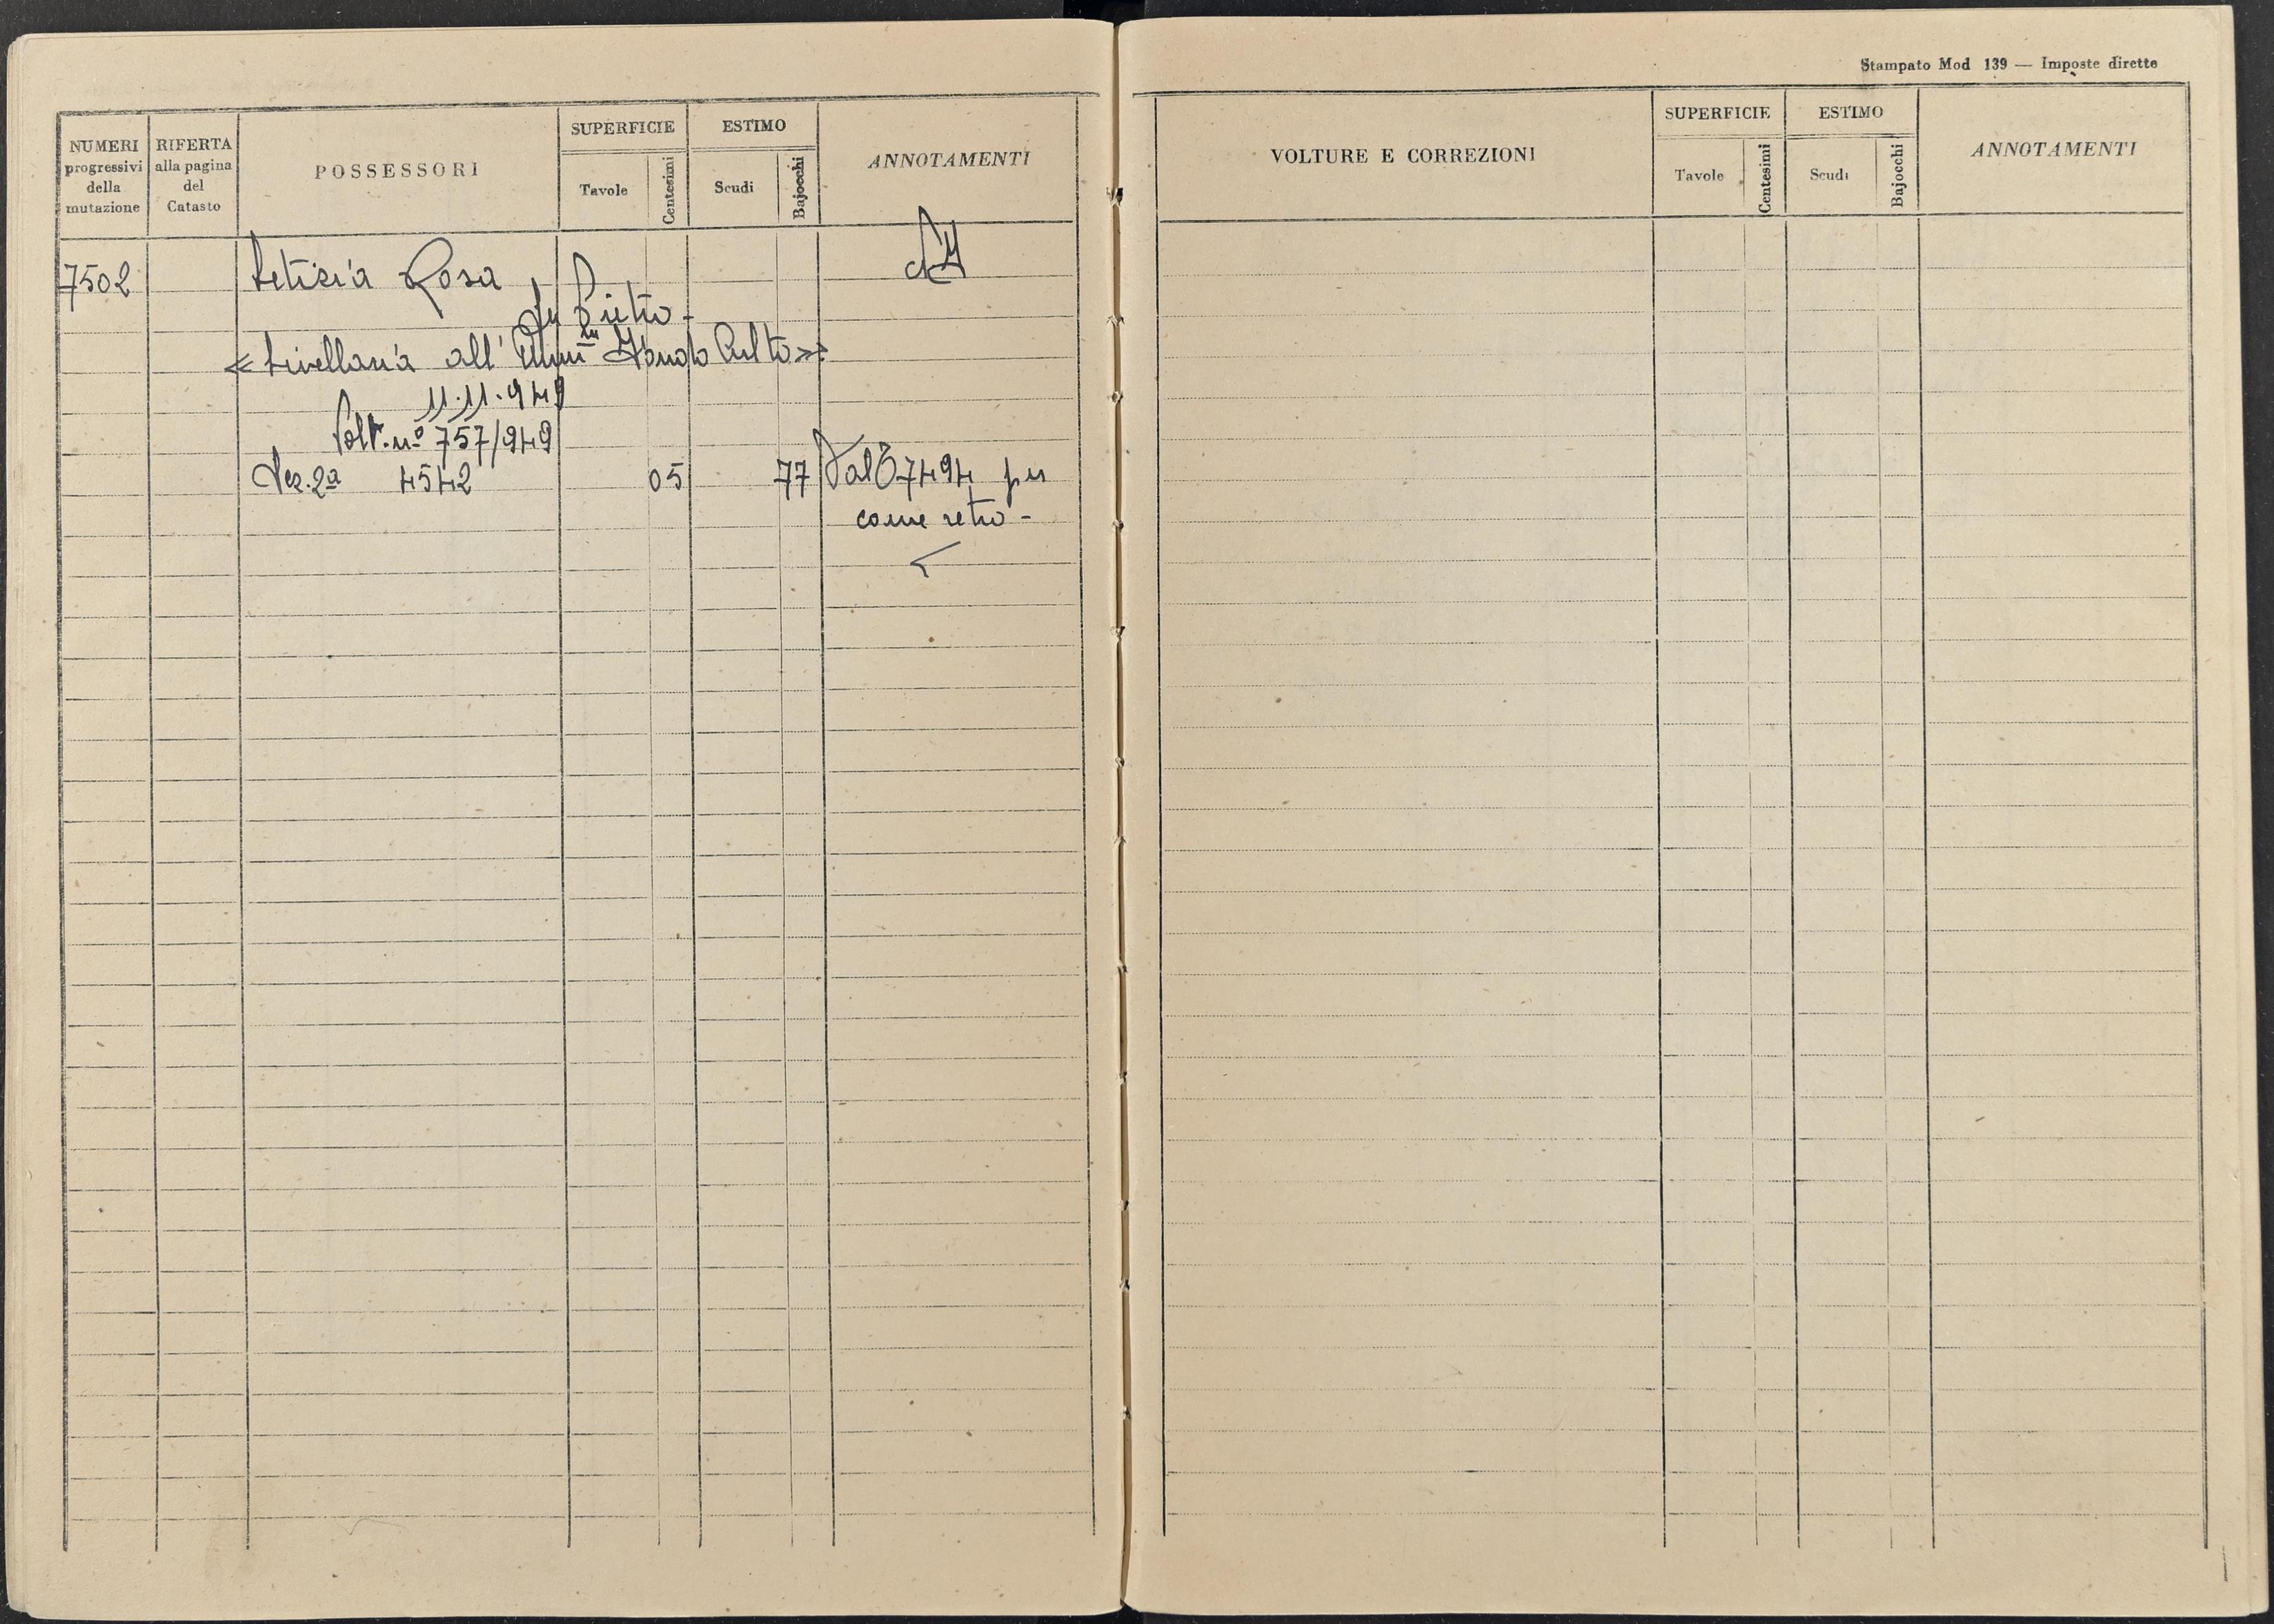 Stampato Mod 139 — Imposte dirette
NUMERI progressivi della mutazione
RIFERTA alla pagina del Catasto
POSSESSORI
SUPERFICIE
Tavole
Centesimi
ESTIMO
Scudi
Bajocchi
ANNOTAMENTI
7502 Letizia Rosa
fu Pietro -
« Livellaria all' Amm ne Fondo Culto »
11.11.949
Volt. nº 757/949
Sez. 2ª 4542 05 77 Dal 7494 per
come retro -
VOLTURE E CORREZIONI
SUPERFICIE
Tavole
Centesimi
ESTIMO
Scudi
Bajocchi
ANNOTAMENTI